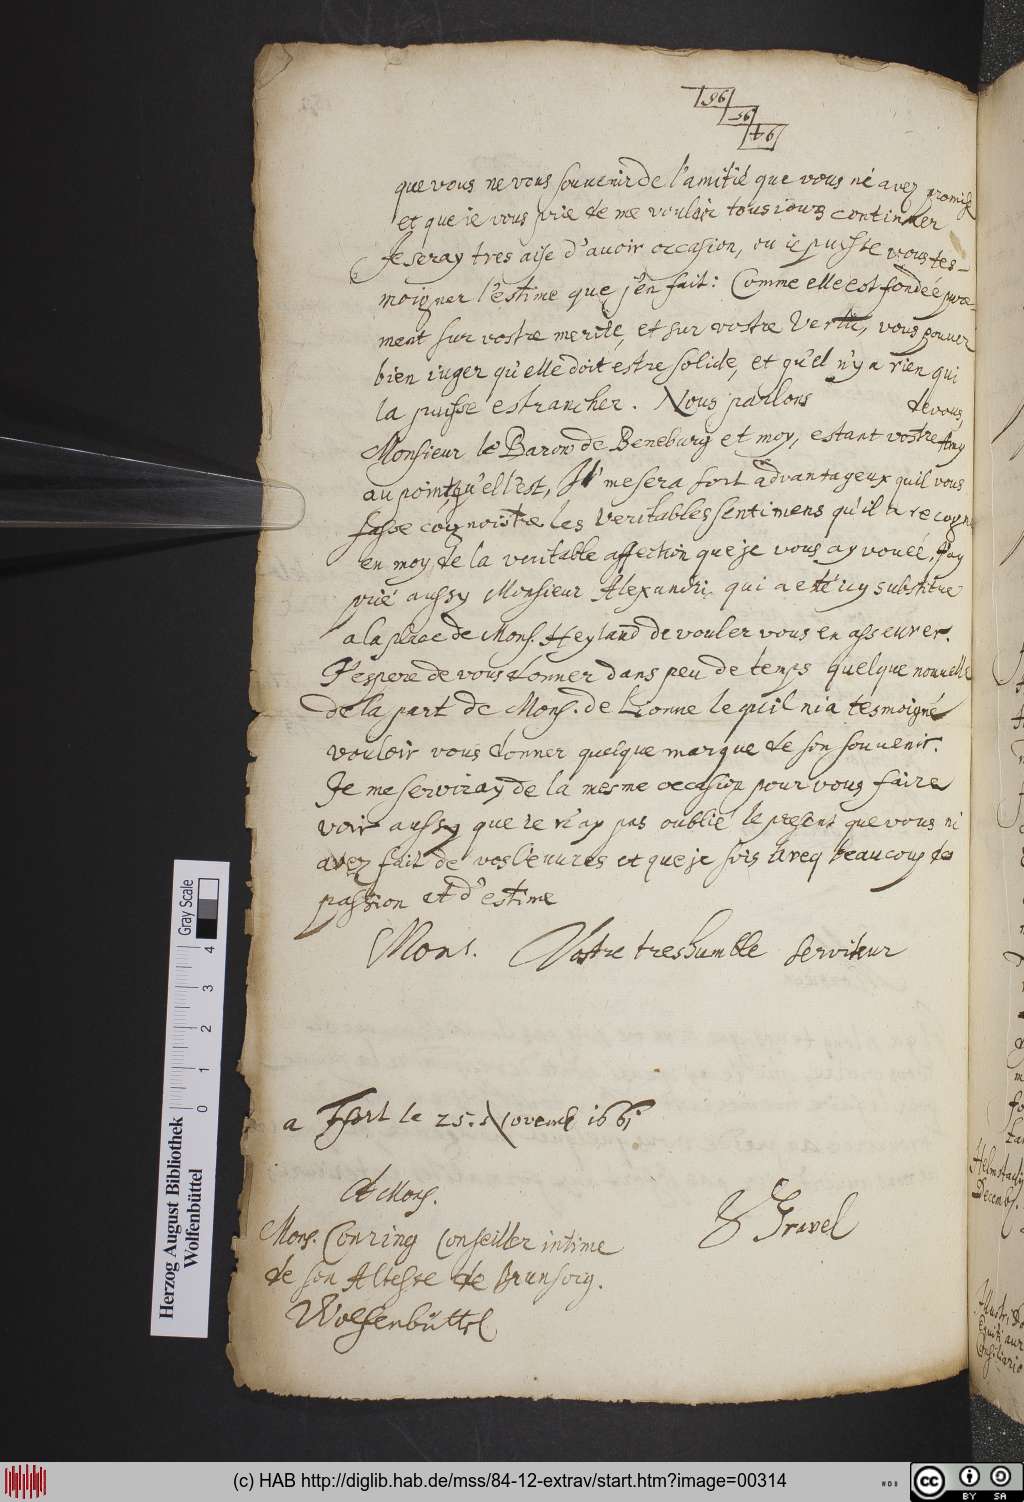 96
95
94
que vous ne vous souuenir de l'amitié que vous né avez promise
et que ie vous prie de me vouloir tousiours continuer
Je seray tres aise d'auoir occasion, ou ie puisse vous tes-
moigner l'estime que j'en fait: Comme elle est fondeé pure-
ment sur vostre merite, et sur vostre Vertu, vous pouuez
bien iuger qu'elle doit estre solide, et qu'el n'y a rien qui
la puisse estrancher. Nous parlons de vous,
Monsieur le Baron de Beneburg et moy, estant vostre Amy
au point qu'el l'est, Il me sera fort advantageux quil vous
fasse cognoistre les veritables sentimens qu'il a recogn
en moy de la veritable affection que je vous ay voueé, J'ay
prié aussy Monsieur Alexandri qui a eté icy substitue
a la place de Mons. Heyland de vouler vous en asseurer.
J'espere de vous donner dans peu de temps quelque nouvelle
de la part de Mons. de Lionne lequil m'a tesmoigné
vouloir vous donner quelque marque de son souvenir.
Je me serviray de la mesme occasion pour vous faire
voir aussy que ie n'ay pas oublié le present que vous m'
avez fait de vos lieuures et que je suis aveq beaucoup de
passion et d'estime
Mons. Vostre treshumble serviteur
a Ffort le 25. Novemb 1661
A Mons.
Mons. Conring Conseiller intime
de son Altesse de Brunsvig.
Wolfenbüttel
Gravel
Helmstad
Decemb.
Herzog August Bibliothek
Wolfenbüttel
0 1 2 3 4
Gray Scale
(c) HAB http://diglib.hab.de/mss/84-12-extrav/start.htm?image=00314
WDB
cc BY SA